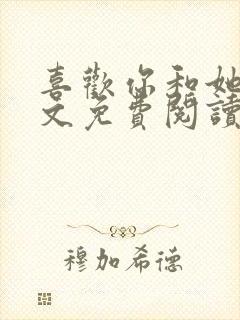 喜歡你和她
文免費閱讀
穆加希德